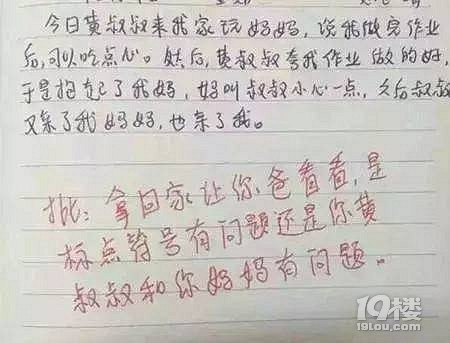 今日黄叔叔来我家玩妈妈，说我做完作业
后，可以吃点心。然后，黄叔叔夸我作业做的好，
于是抱起了我妈，妈叫叔叔小心一点，之后叔叔
又亲了我妈妈，也亲了我。
批：拿回家让你爸看看，是
标点符号有问题还是你黄
叔叔和你妈妈有问题。
19楼
19lou.com